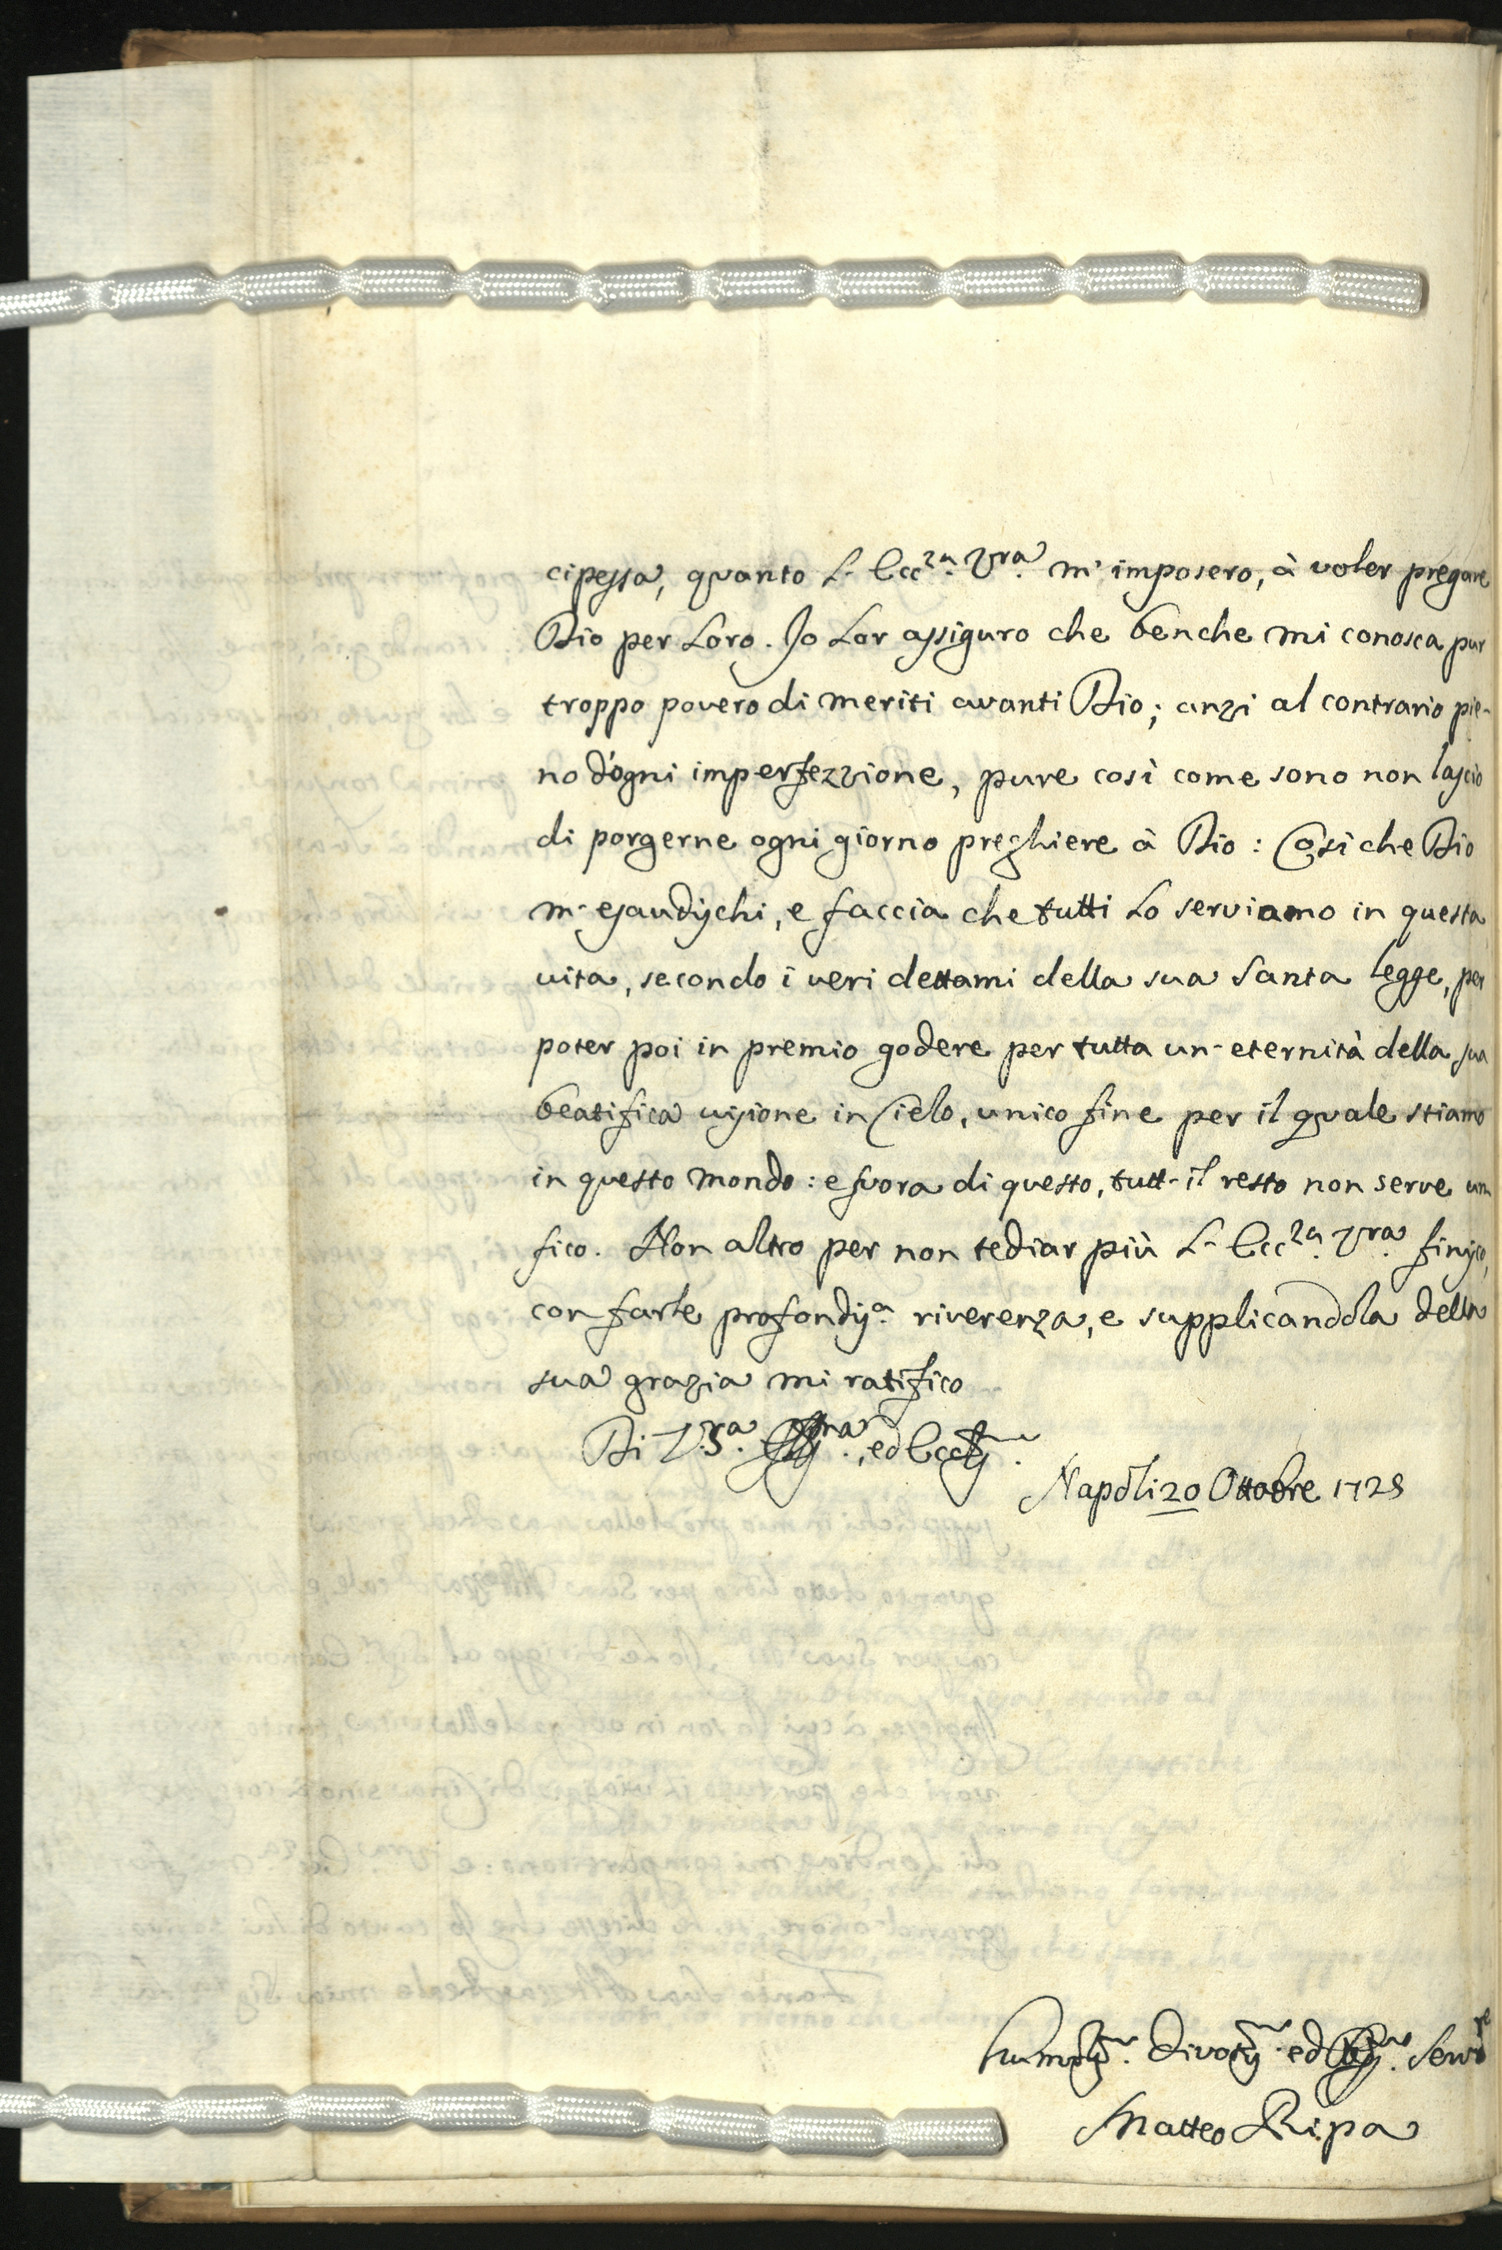 cipessa, quanto L'Ecc.za V.ra m'imposero, à voler pregare
Dio per Loro. Io Lor assiguro che benche mi conosca pur
troppo povero di meriti avanti Dio; anzi al contrario pie-
no d'ogni imperfezzione, pure così come sono non lascio
di porgerne ogni giorno preghiere à Dio: Così che Dio
m'esaudischi, e faccia che tutti Lo serviamo in questa
vita, secondo i veri dettami della sua Santa legge, per
poter poi in premio godere per tutta un'eternità della sua
beatifica visione in Cielo, unico fine per il quale stiamo
in questo mondo: e fuora di questo, tutt'il resto non serve un
fico. Non altro per non tediar più L'Ecc.za V.ra finisco,
con farle profondis.a riverenza, e supplicandola della
sua grazia mi ratifico
Di V.S.a ed Ecc.
Napoli 20 Ottobre 1725
Humilis. Divotis. ed Serv.re
Matteo Ripa